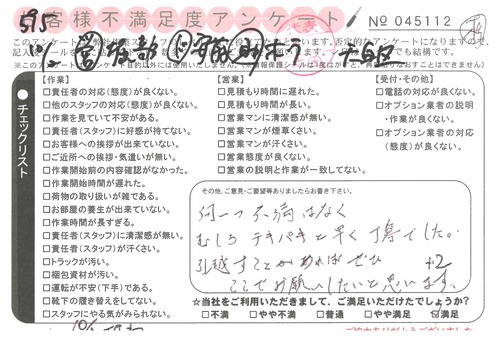 お客様不満足度アンケート
№ 045112
チェックリスト
【作業】
□責任者の対応(態度)が良くない。
□他のスタッフの対応(態度)が良くない。
□作業を見ていて不安がある。
□責任者(スタッフ)に好感が持てない。
□お客様への挨拶が出来ていない。
□ご近所への挨拶・気遣いが無い。
□作業開始前の内容確認がなかった。
□作業開始時間が遅れた。
□荷物の取り扱いが雑である。
□お部屋の養生が出来ていない。
□作業時間が長すぎる。
□責任者(スタッフ)に清潔感が無い。
□責任者(スタッフ)が汗くさい。
□トラックが汚い。
□梱包資材が汚い。
□運転が不安(下手)である。
□靴下の履き替えをしてない。
□スタッフにやる気がみられない。
【営業】
□見積もり時間に遅れた。
□見積もり時間が長い。
□営業マンに清潔感が無い。
□営業マンが煙草くさい。
□営業マンが汗くさい。
□営業態度が良くない。
□営業の説明と作業が一致してない。
【受付・その他】
□電話の対応が良くない。
□オプション業者の説明・作業が良くない。
□オプション業者の対応(態度)が良くない。
その他、ご意見・ご要望等ありましたらお書き下さい。
何一つ不満はなく
むしろ テキパキと早く丁寧でした。
引越すことがあればぜひ
ここでお願いしたいと思います。
+2
☆当社をご利用いただきまして、ご満足いただけたでしょうか?
□不満 □やや不満 □普通 □やや満足 ☑満足
ご協力ありがとうございました